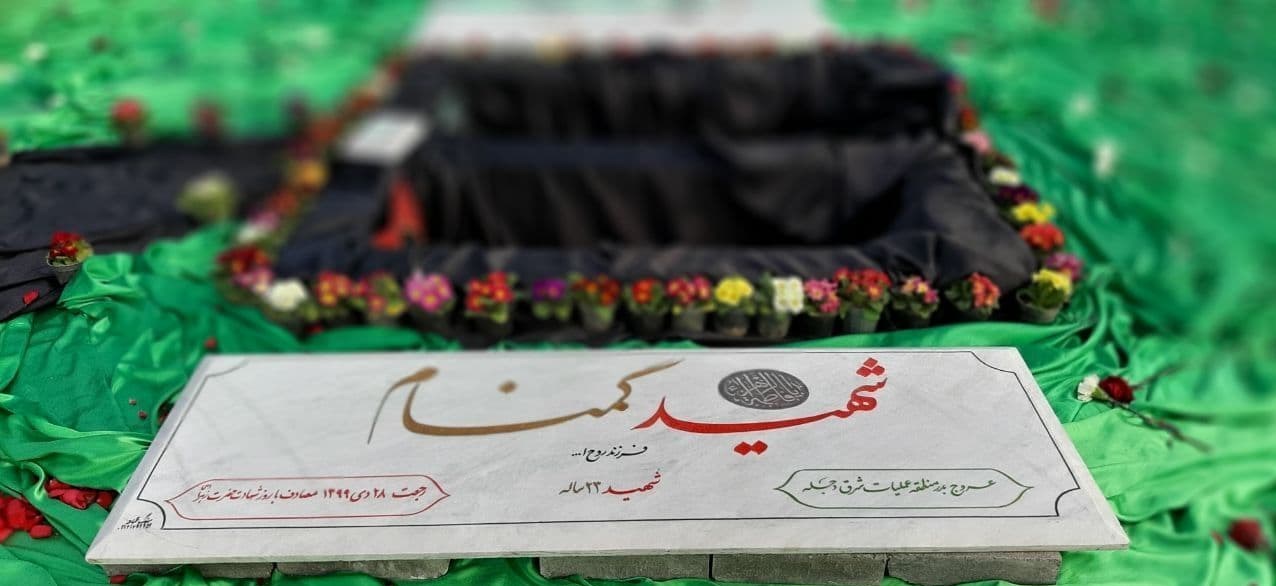 شهید گمنام
یا فاطمه الزهرا
فرزند روح ا...
شهید ۲۳ ساله
عروج بدر منطقه عملیات شرق دجله
رجعت ۲۸ دی ۱۳۹۹ مصادف با روز شهادت حضرت زهرا (س)